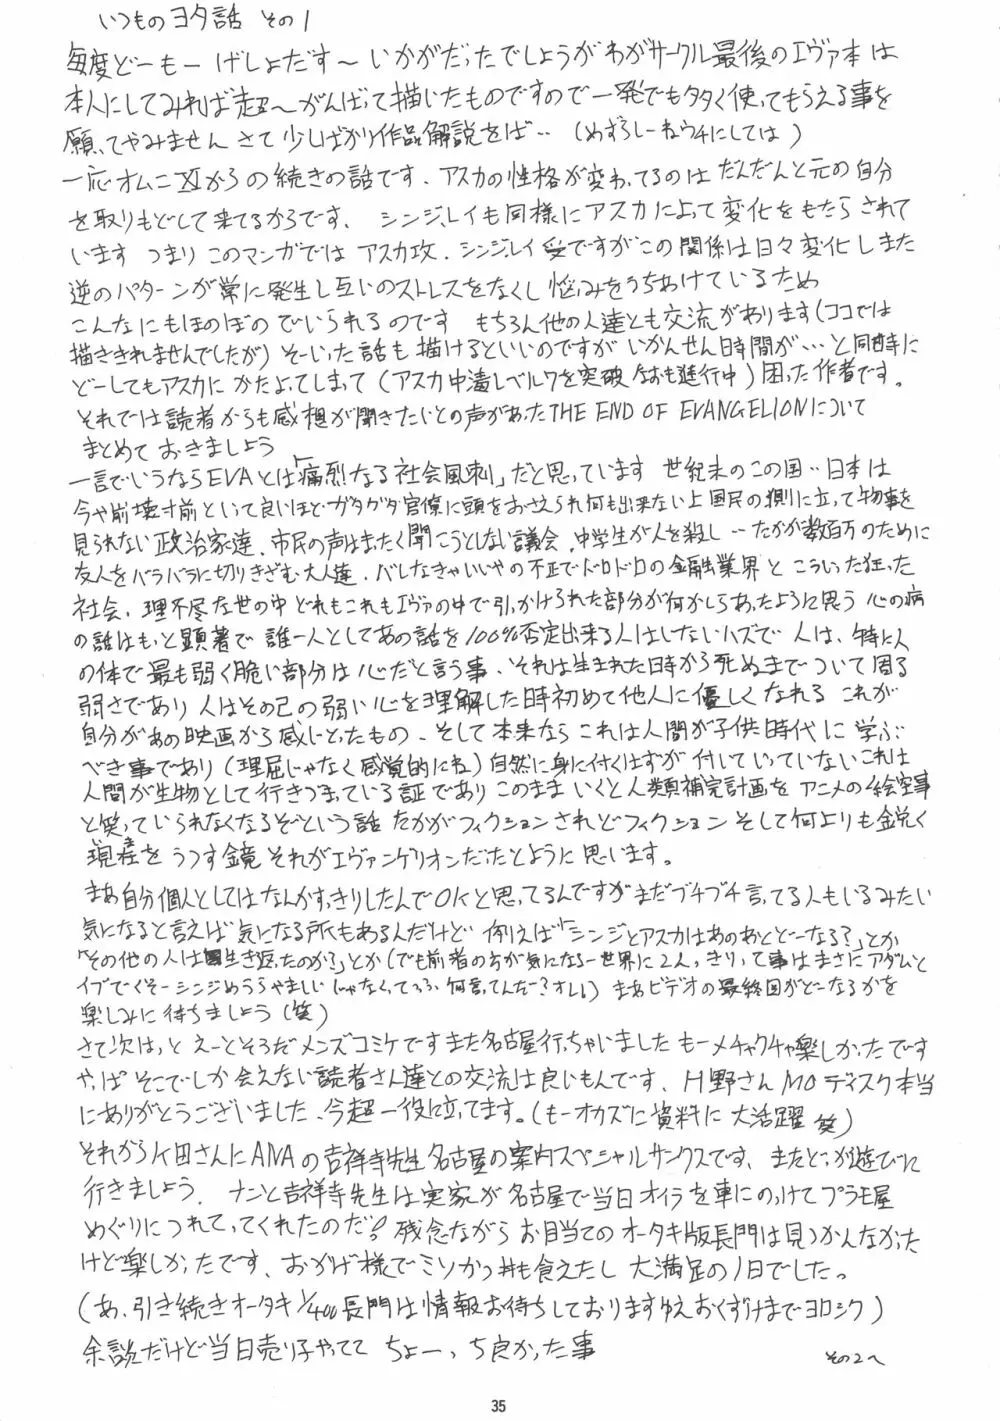 いつものヨタ話 その1
毎度どーもー げしょだす〜 いかがだったでしょうか わがサークル最後のエヴァ本は
本人にしてみれば超〜がんばって描いたものですので一発でも多く使ってもらえる事を
願ってやみません さて少しばかり作品解説をば‥ (めずらしーねウチにしては)
一応オムニⅪからの続きの話です、アスカの性格が変わってるのは だんだんと元の自分
を取りもどして来てるからです、 シンジ、レイも同様にアスカによって変化をもたらされて
います つまり このマンガでは アスカ攻、シンジ、レイ受ですが この関係は日々変化しまた
逆のパターンが常に発生し互いのストレスをなくし 悩みをうちあけているため
こんなにもほのぼの でいられるのです もちろん他の人達とも交流があります(ココでは
描ききれませんでしたが) そーいった話も 描けるといいのですが いかんせん時間が…と同時に
どーしてもアスカに かたよってしまって (アスカ中毒レベル7を突破なおも進行中) 困った作者です。
それでは読者からも感想が聞きたいとの声があったTHE END OF EVANGELIONについて
まとめて おきましょう
一言でいうならEVAとは「痛烈なる社会風刺」だと思っています 世紀末のこの国‥日本は
今や崩壊寸前といって良いほどガタガタ官僚に頭をおさえられ何も出来ない上国民の側に立って物事を
見られない政治家達、市民の声はまったく聞こうとしない議会、中学生が人を殺し‥たかが数百万のために
友人をバラバラに切りきざむ大人達、バレなきゃいいやの不正でドロドロの金融業界と こういった狂った
社会、理不尽な世の中 どれもこれもエヴァの中で引っかけられた部分が何かしらあったように思う 心の病
の話はもっと顕著で 誰一人としてあの話を100%否定出来る人はいないハズで 人は、特に人
の体で最も弱く脆い部分は心だと言う事、それは生まれた時から死ぬまでついて回る
弱さであり 人はその己の弱い心を理解した時初めて他人に優しくなれる これが
自分があの映画から感じとったもの、そして本来なら これは人間が子供時代に学ぶ
べき事であり(理屈じゃなく感覚的にね)自然に身に付くはずが 付いていっていない これは
人間が生物として行きづまっている証であり このまま いくと人類補完計画を アニメの絵空事
と笑っていられなくなるぞという話 たかがフィクションされどフィクション そして何よりも鋭く
現在をうつす鏡 それがエヴァンゲリオンだったとように思います。
まあ自分個人としてはなんかすっきりしたんでOKと思ってるんですがまだブチブチ言ってる人もいるみたい
気になると言えば気になる所もあるんだけど 例えば「シンジとアスカはあのあとどーなる?」とか
「その他の人は生き返ったのか?」とか(でも前者の方が気になるー世界に2人っきりって事はまさにアダムと
イブでくそーシンジめうらやましい じゃなくってっっ、何言ってんだー?オレ) まあビデオの最終回がどーなるかを
楽しみに待ちましょう(笑)
さて次はっと えーとそうだメンズコミケです また名古屋行っちゃいました もーメチャクチャ楽しかったです
やっぱ そこでしか会えない読者さん達との交流は良いもんです、H野さん MOディスク本当
にありがとうございました、今超一役に立ってます。(もーオカズに資料に 大活躍 笑)
それからケ田さんにANAの吉祥寺先生名古屋の案内スペシャルサンクスです、またどっか遊びに
行きましょう、 ナンと吉祥寺先生は実家が名古屋で当日オイラを車にのっけてプラモ屋
めぐりにつれてってくれたのだ! 残念ながら お目当てのオータキ版長門は見つかんなかった
けど楽しかったです、おかげ様でミソかつ丼も食えたし 大満足の1日でした。
(あ、引き続きオータキ1/400長門は情報お待ちしておりますゆえおくずけまでヨロシク)
余談だけど当日売り子やってて ちょーっち良かった事
その2へ
35